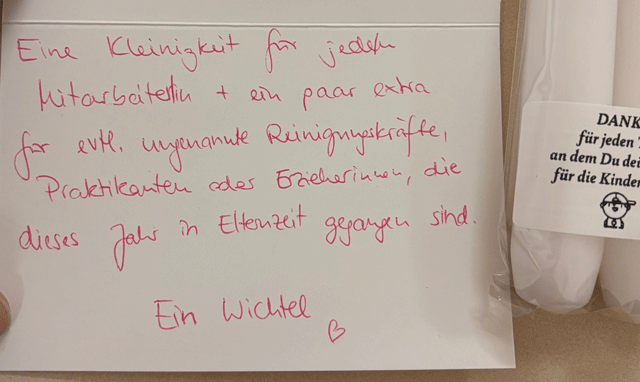 Eine Kleinigkeit für jede/n
Mitarbeiter/in + ein paar extra
für evtl. ungenannte Reinigungskräfte,
Praktikanten oder Erzieherinnen, die
dieses Jahr in Elternzeit gegangen sind.
Ein Wichtel
DANK
für jeden
an dem Du dei
für die Kinde